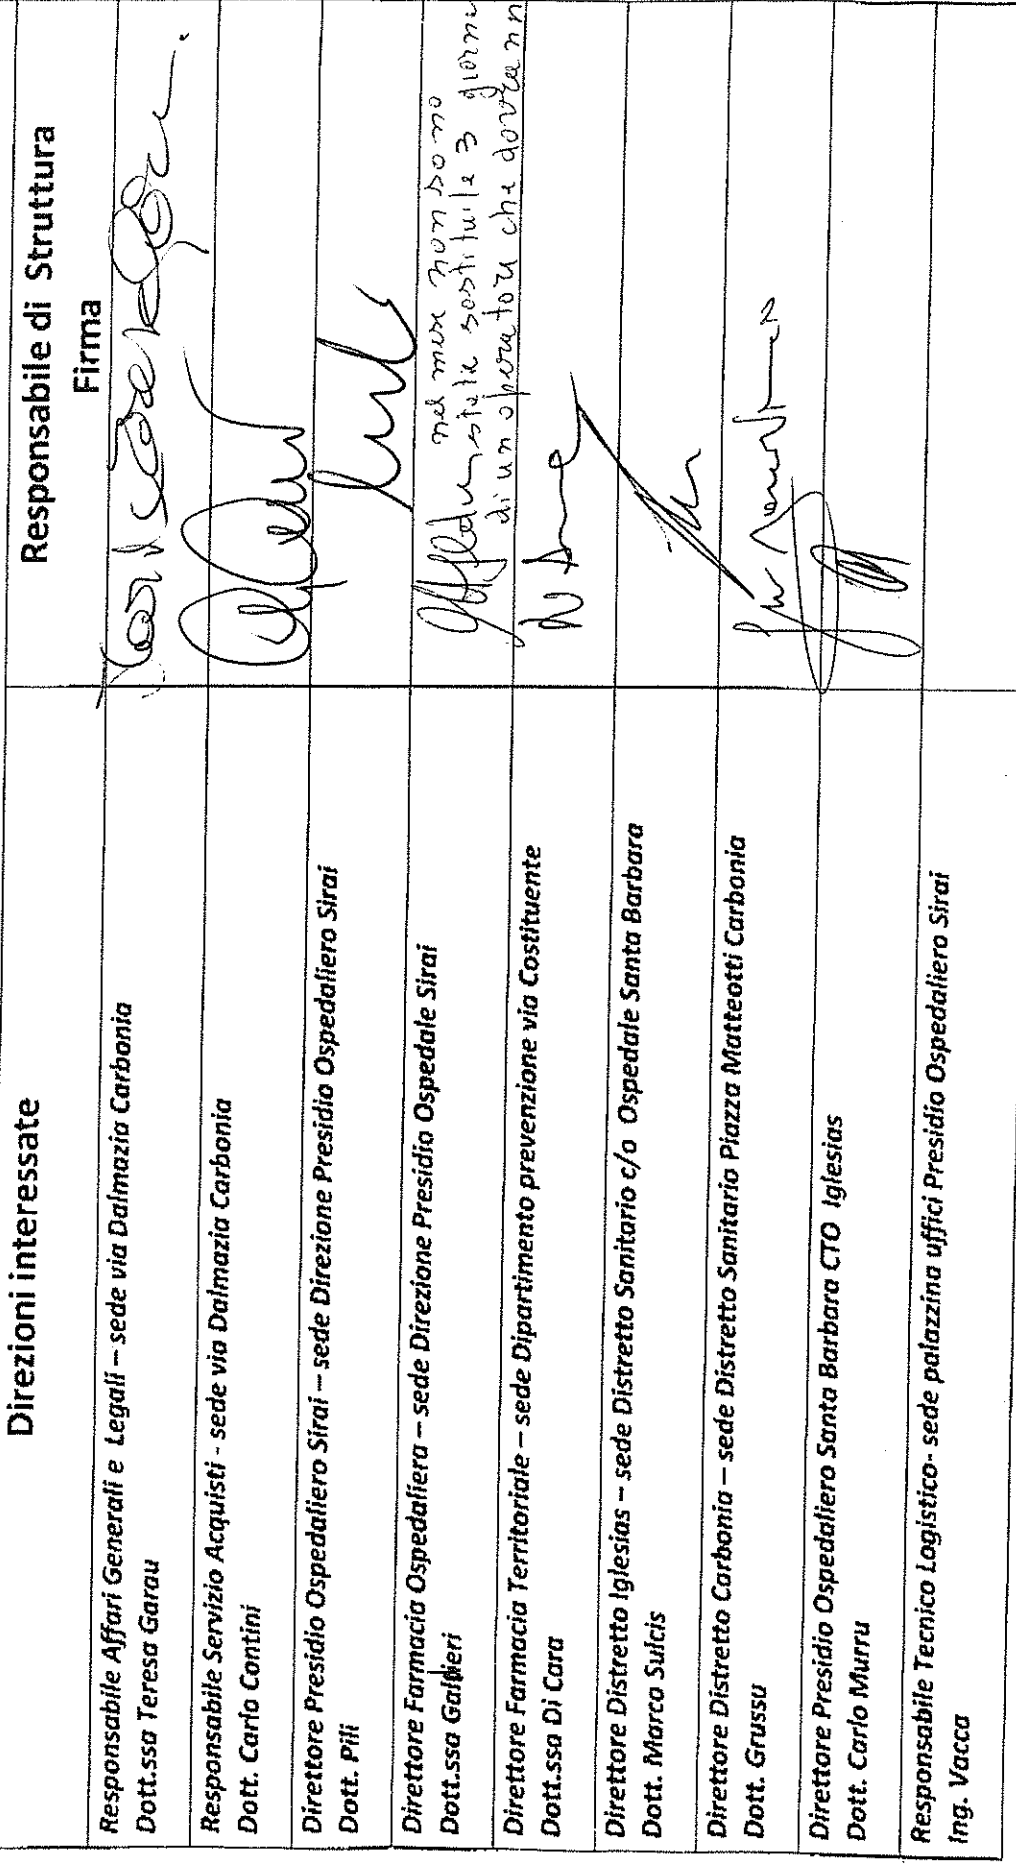 Direzioni interessate
Responsabile di Struttura
Firma
Responsabile Affari Generali e Legali – sede via Dalmazia Carbonia
Dott.ssa Teresa Garau
Responsabile Servizio Acquisti - sede via Dalmazia Carbonia
Dott. Carlo Contini
Direttore Presidio Ospedaliero Sirai – sede Direzione Presidio Ospedaliero Sirai
Dott. Pili
Direttore Farmacia Ospedaliera – sede Direzione Presidio Ospedale Sirai
Dott.ssa
nel mese non sono
state sostituite 3 giorni
di un operatore che dovrann
Direttore Farmacia Territoriale – sede Dipartimento prevenzione via Costituente
Dott.ssa Di Cara
Direttore Distretto Iglesias – sede Distretto Sanitario c/o Ospedale Santa Barbara
Dott. Marco Sulcis
Direttore Distretto Carbonia – sede Distretto Sanitario Piazza Matteotti Carbonia
Dott. Grussu
Direttore Presidio Ospedaliero Santa Barbara CTO Iglesias
Dott. Carlo Murru
Responsabile Tecnico Logistico- sede palazzina uffici Presidio Ospedaliero Sirai
Ing. Vacca